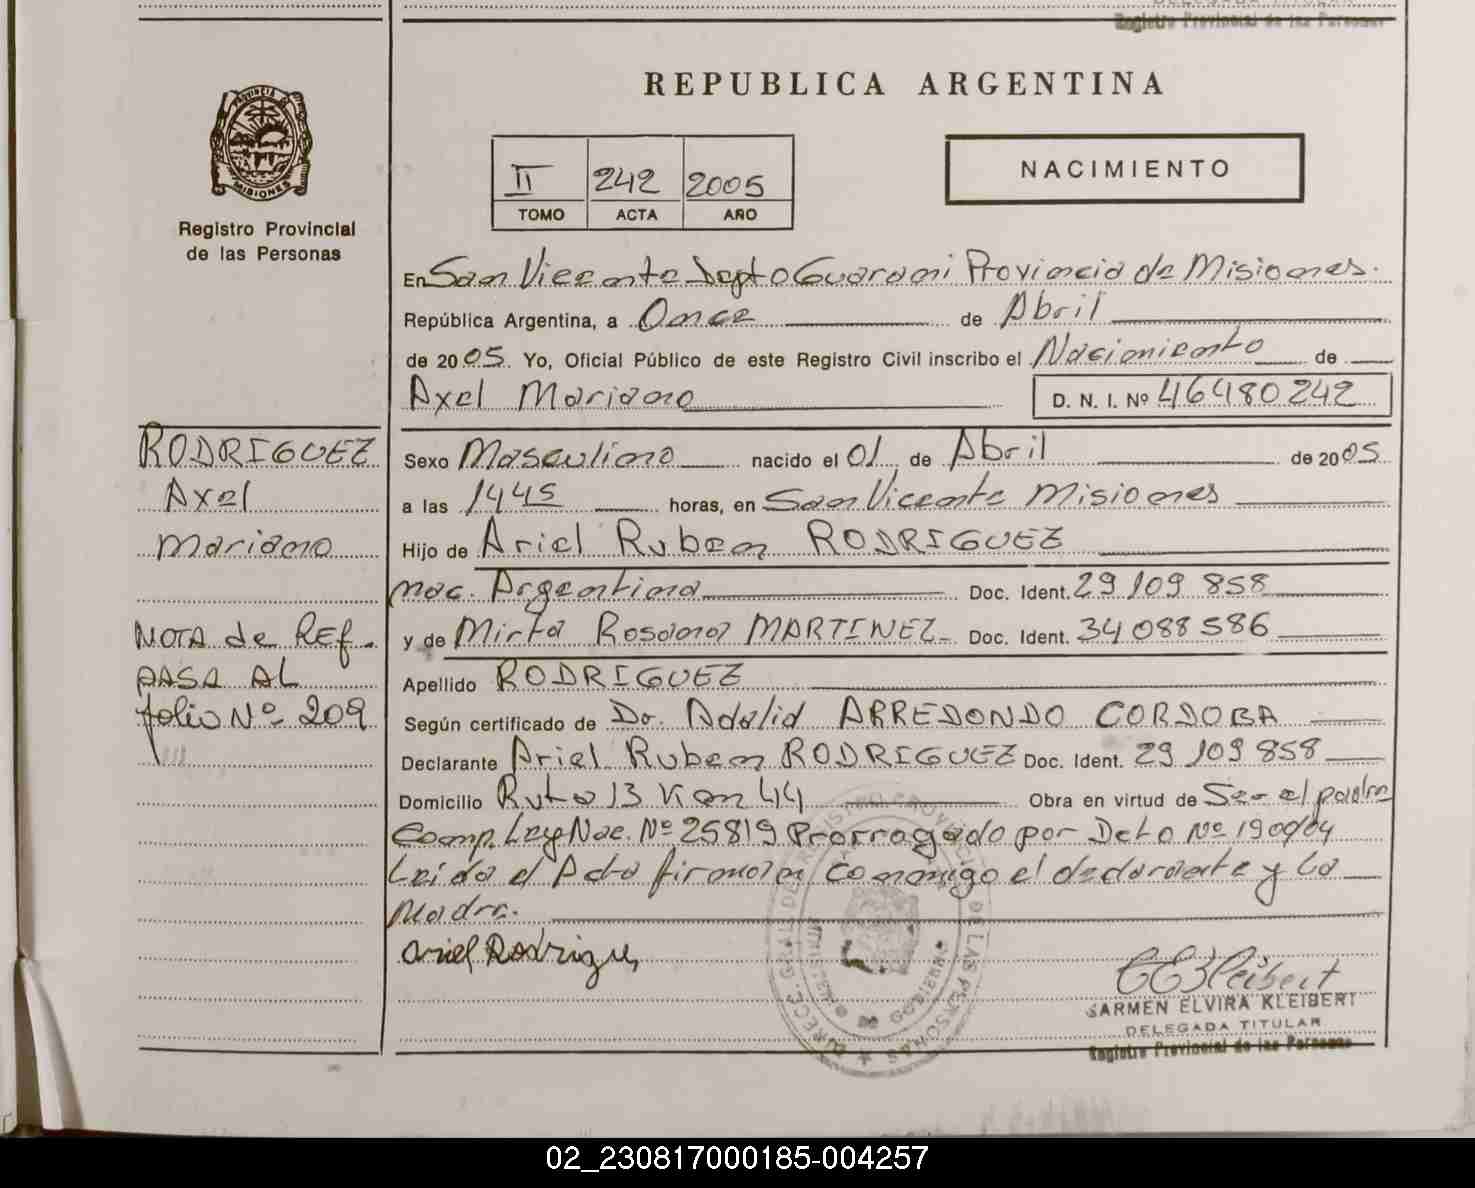 Registro Provincial de las Personas
REPUBLICA ARGENTINA
PROVINCIA DE
MISIONES
Registro Provincial
de las Personas
II 242 2005
TOMO ACTA AÑO
NACIMIENTO
En San Vicente Depto Guarani Provincia de Misiones.
República Argentina, a Once de Abril
de 2005. Yo, Oficial Público de este Registro Civil inscribo el Nacimiento de
Axel Mariano D. N. I. Nº 46480242
RODRIGUEZ
Axel
Mariano
NOTA de REf.
PASA AL
folio Nº 209
Sexo Masculino nacido el 01 de Abril de 2005
a las 1445 horas, en San Vicente Misiones
Hijo de Ariel Ruben RODRIGUEZ
nac. Argentina Doc. Ident. 29 109 858
y de Mirta Rosana MARTINEZ Doc. Ident. 34 088 586
Apellido RODRIGUEZ
Según certificado de Dr. Adalid ARREDONDO CORDOBA
Declarante Ariel Ruben RODRIGUEZ Doc. Ident. 29 109 858
Domicilio Ruta 13 Km 44 Obra en virtud de Ser el padre
Comp. Ley Nac. Nº 25819 Prorragado por Dcto Nº 1900/04
Leida el Acta firman conmigo el declarante y la
Madre.
Ariel Rodriguez
CEKleibert
CARMEN ELVIRA KLEIBERT
DELEGADA TITULAR
Registro Provincial de las Personas
02_230817000185-004257